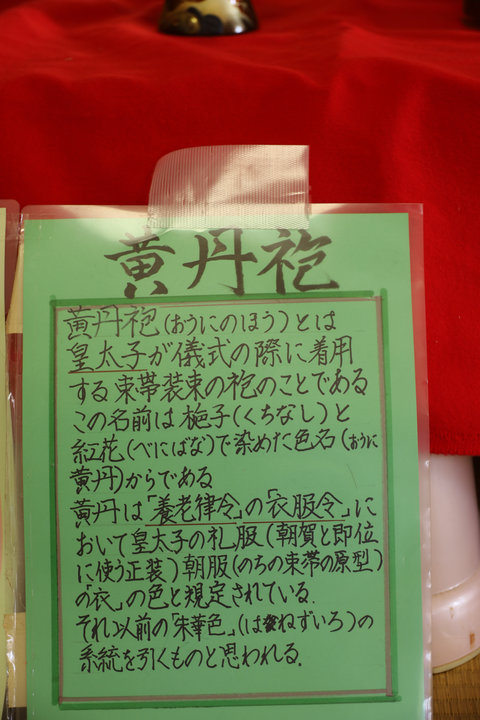 黄丹袍
黄丹袍(おうにのほう)とは
皇太子が儀式の際に着用
する束帯装束の袍のことである
この名前は梔子(くちなし)と
紅花(べにばな)で染めた色名(おうに
黄丹)からである
黄丹は「養老律令」の「衣服令」に
おいて皇太子の礼服(朝賀と即位
に使う正装)朝服(のちの束帯の原型)
の「衣」の色と規定されている.
それ以前の「朱華色」(はねずいろ)の
系統を引くものと思われる.